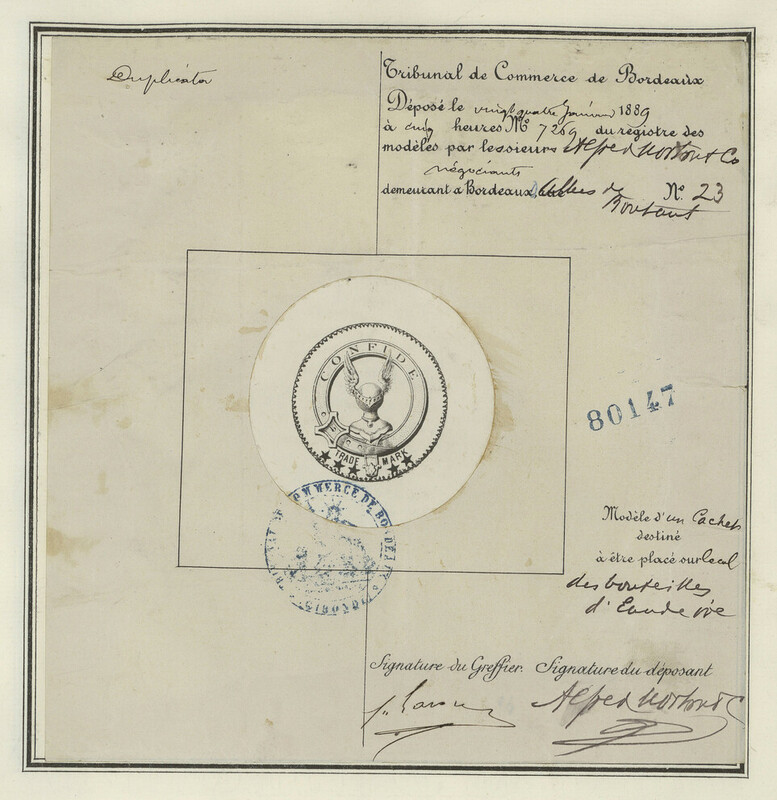 Duplicata
Tribunal de Commerce de Bordeaux
Déposé le vingt quatre Janvier 1889
à cinq heures N° 7269 du registre des
modèles par les sieurs Alfred Morton & Co
négociants
demeurant à Bordeaux Allées de N° 23
Boutaut
CONFIDE
TRADE MARK
80147
TRIBUNAL DE COMMERCE DE BORDEAUX
GIRONDE
Modèle d'un Cachet
destiné
à être placé sur le col
des bouteilles
d'Eau de vie
Signature du Greffier. Signature du déposant
Alfred Morton & C